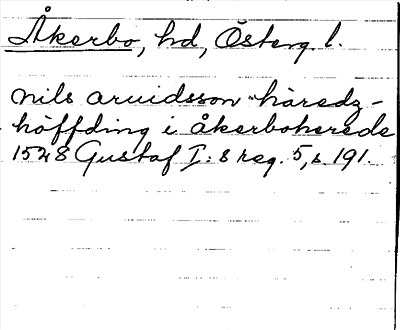 Åkerbo, hd, Österg. l.
Nils Arvidsson häredz-
höffding i åkerboherede
1528 Gustaf I:s reg. 5, s. 191.